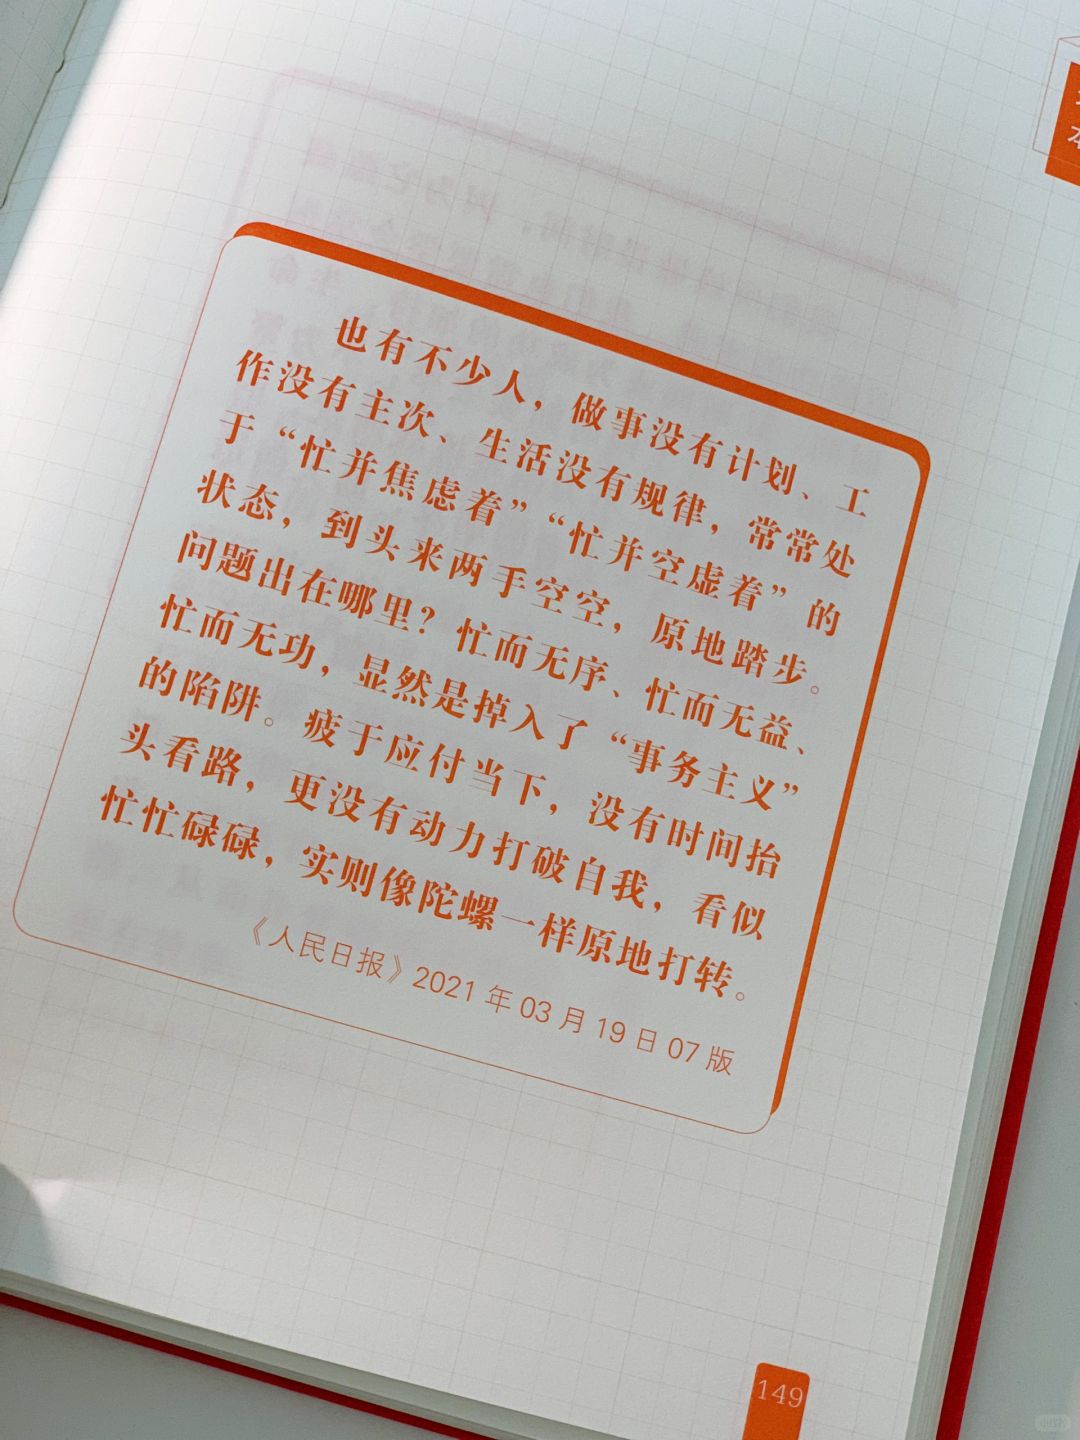 也有不少人，做事没有计划、工
作没有主次、生活没有规律，常常处
于“忙并焦虑着”“忙并空虚着”的
状态，到头来两手空空，原地踏步。
问题出在哪里？忙而无序、忙而无益、
忙而无功，显然是掉入了“事务主义”
的陷阱。疲于应付当下，没有时间抬
头看路，更没有动力打破自我，看似
忙忙碌碌，实则像陀螺一样原地打转。
《人民日报》2021年03月19日07版
149
小红书